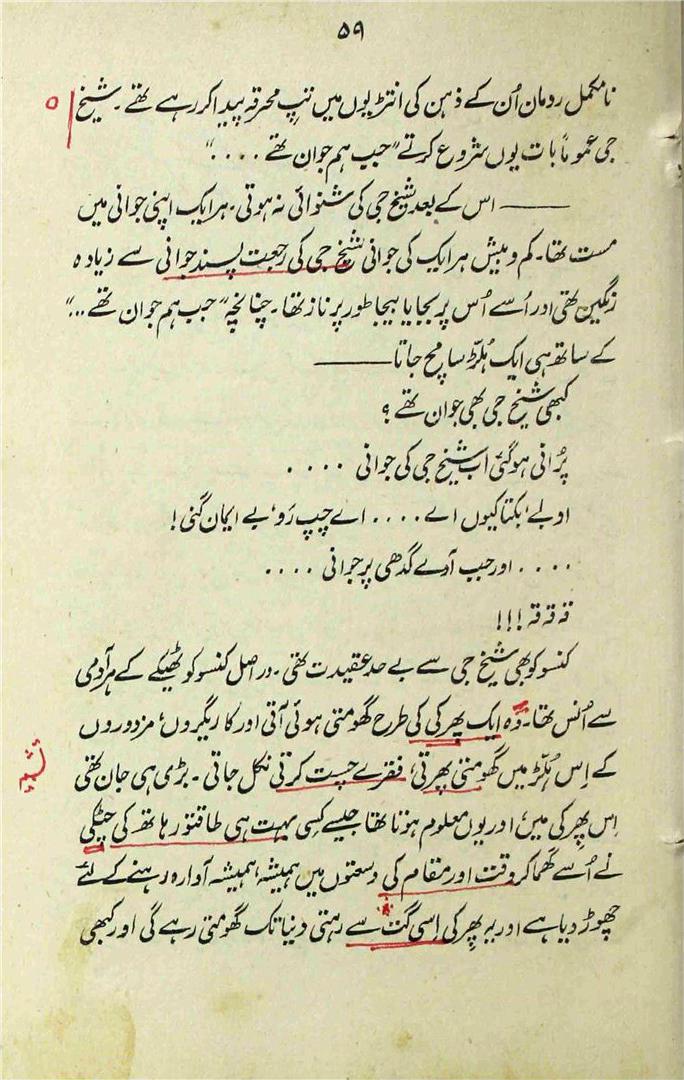 ۵۹
نامکمل رومان اُن کے ذہن کی انتڑیوں میں تپِ محرقہ پیدا کر رہے تھے۔ شیخ
جی عموماً بات یوں شروع کرتے ”جب ہم جوان تھے . . . .“
——— اس کے بعد شیخ جی کی شنوائی نہ ہوتی۔ ہر ایک اپنی جوانی میں
مست تھا۔ کم و بیش ہر ایک کی جوانی شیخ جی کی رجعت پسند جوانی سے زیادہ
رنگین تھی اور اُسے اُس پر بجا یا بیجا طور پر ناز تھا۔ چنانچہ ”جب ہم جوان تھے ...“
کے ساتھ ہی ایک ہُلڑ سا مچ جاتا ———
کبھی شیخ جی بھی جوان تھے ؟
پُرانی ہو گئی اب شیخ جی کی جوانی . . . .
او لے، بکتا کیوں اے . . . . اے چپ رَو، بے ایمان گنی !
. . . . اور جب آوے گدھی پر جوانی . . . .
قہ قہ قہ ! ! !
کنسو کو بھی شیخ جی سے بے حد عقیدت تھی۔ در اصل کنسو کو ٹھیکے کے ہر آدمی
سے اُنس تھا۔ وُہ ایک پھرکی کی طرح گھومتی ہوئی آتی اور کاریگروں، مزدوروں
کے اِس ہُلڑ میں گھومتی پھرتی، فقرے چست کرتی نکل جاتی۔ بڑی ہی جان تھی
اِس پھرکی میں، اور یوں معلوم ہوتا تھا جیسے کسی بہت ہی طاقتور ہاتھ کی چٹکی
نے اُسے گھما کر وقت اور مقام کی وسعتوں میں ہمیشہ، ہمیشہ آوارہ رہنے کے لئے
چھوڑ دیا ہے اور یہ پھرکی اِسی گت سے رہتی دنیا تک گھومتی رہے گی اور کبھی